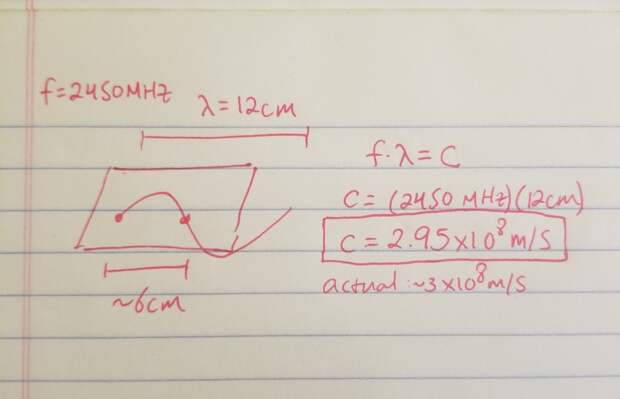 f=2450MHZ
λ=12cm
~6cm
f·λ=C
C=(2450 MHZ)(12cm)
C=2.95x10⁸m/s
actual:~3x10⁸m/s